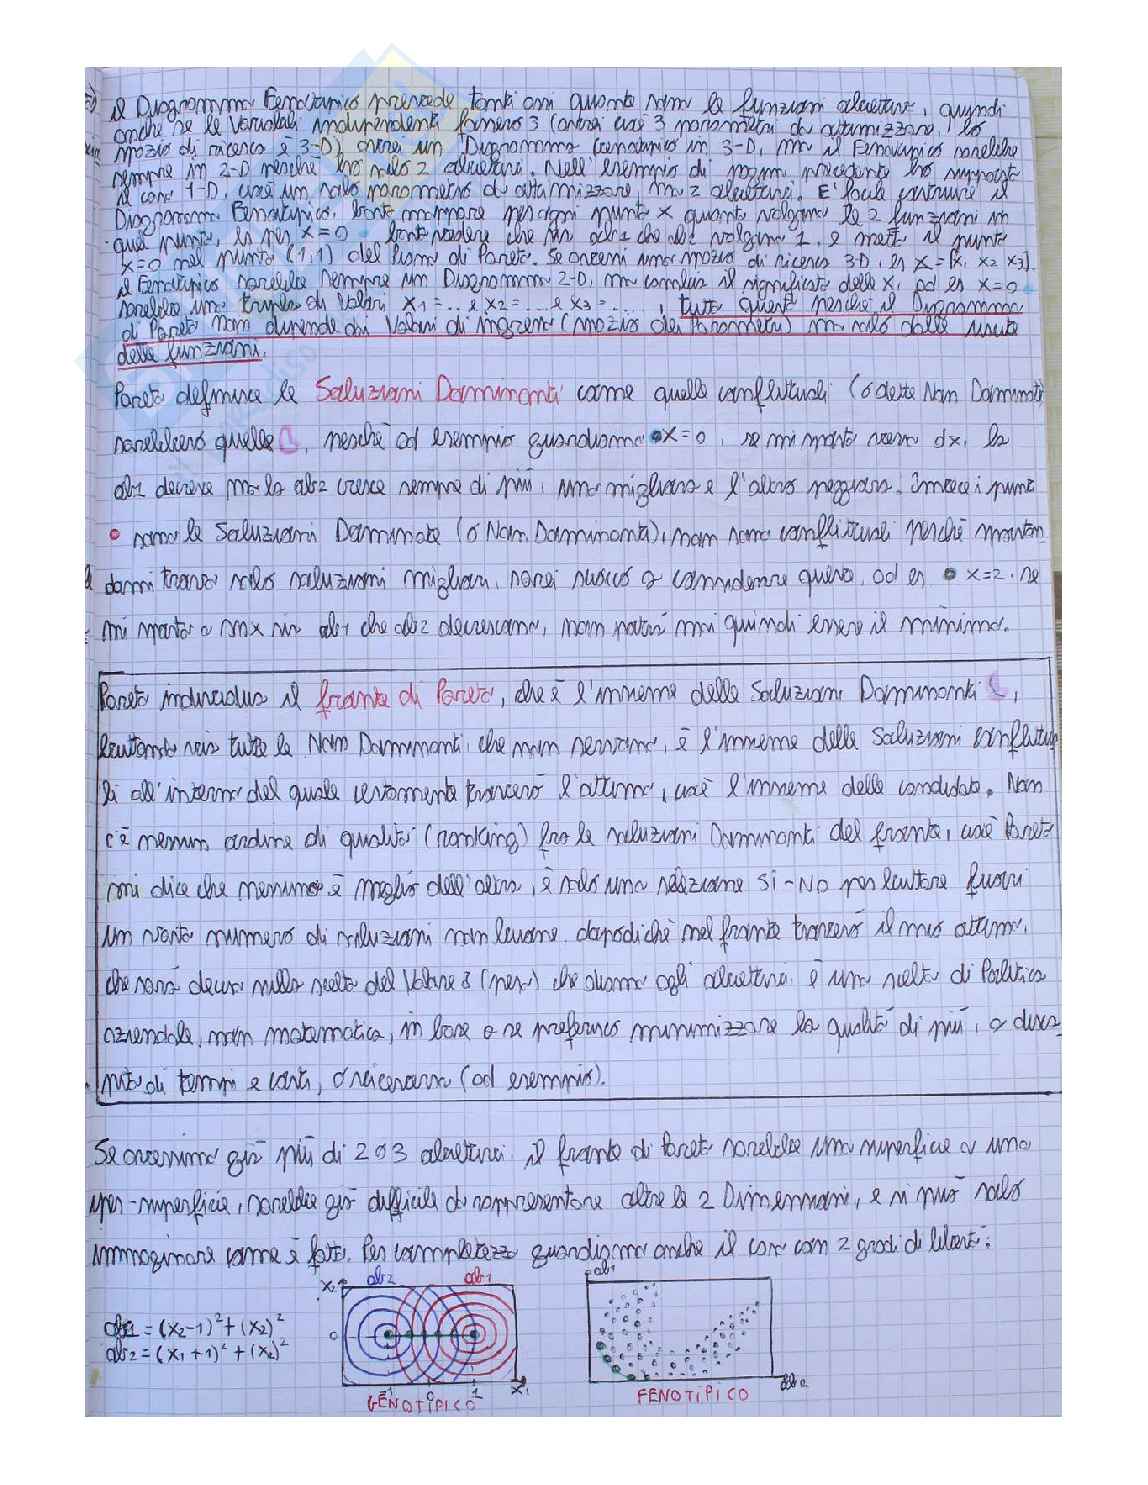 il Diagramma Fenotipico prevede tanti assi quante sono le funzioni obiettivo, quindi
anche se le Variabili indipendenti fossero 3 (avrei cioè 3 parametri da ottimizzare, lo
spazio di ricerca è 3-D), avrei un Diagramma Genotipico in 3-D, ma il Fenotipico sarebbe
sempre in 2-D perché ho solo 2 obiettivi. Nell'esempio di pagina precedente ho supposto
il caso 1-D, cioè un solo parametro da ottimizzare, ma 2 obiettivi. E' facile costruire il
Diagramma Fenotipico, basta mappare per ogni punto x quanto valgono le 2 funzioni in
quel punto, es per x=0 basta vedere che sia ob1 che ob2 valgono 1, e metto il punto
x=0 nel punto (1,1) del Piano di Pareto. Se avessi uno spazio di ricerca 3D, es x=[x1 x2 x3],
il Fenotipico sarebbe sempre un Diagramma 2-D, ma cambia il significato delle x, ad es x=0
sarebbe una tripla di Valori x1=... e x2=... e x3=..., tutto questo perché il Diagramma
di Pareto non dipende dai Valori di ingresso (spazio dei Parametri) ma solo dalle uscite
delle funzioni.
Pareto definisce le Soluzioni Dominanti come quelle conflittuali (o dette Non Dominate)
sarebbero quelle, perché ad esempio guardiamo x=0, se mi sposto verso dx, la
ob1 decresce ma la ob2 cresce sempre di più, una migliora e l'altra peggiora; invece i punti
sono le Soluzioni Dominate (o Non Dominanti), non sono conflittuali perché spostan
domi trovo solo soluzioni migliori, non riesco a considerare queste, ad es x=2, se
mi sposto a sx sia ob1 che ob2 decrescono, non potrà mai quindi essere il minimo.
Pareto individua il fronte di Pareto, che è l'insieme delle Soluzioni Dominanti,
buttando via tutte le Non Dominanti, che non servono, è l'insieme delle Soluzioni conflittua
li all'interno del quale certamente troverò l'ottimo, cioè l'insieme delle candidate. Non
c'è nessun ordine di qualità (ranking) fra le soluzioni Dominanti del fronte, cioè Pareto
mi dice che nessuna è meglio dell'altra, è solo una selezione SI-NO per buttare fuori
un vasto numero di soluzioni non buone, dopodiché nel fronte troverò il mio ottimo,
che sarà deciso sulla scelta del Valore (peso) che diamo agli obiettivi, è una scelta di Politica
aziendale, non matematica, in base a se preferisco minimizzare la qualità di più, a disca
pito di tempi e costi, o viceversa (ad esempio).
Se avessimo già più di 2 o 3 obiettivi il fronte di Pareto sarebbe una superficie o una
iper-superficie, sarebbe già difficile da rappresentare oltre le 2 Dimensioni, e si può solo
immaginare come è fatto. Per completezza guardiamo anche il caso con 2 gradi di libertà:
ob1 = (x2-1)²+(x2)²
ob2 = (x1+1)²+(x2)²
x2 ob2 ob1
0
-1 0 1 x1
GENOTIPICO
ob1
ob2
FENOTIPICO